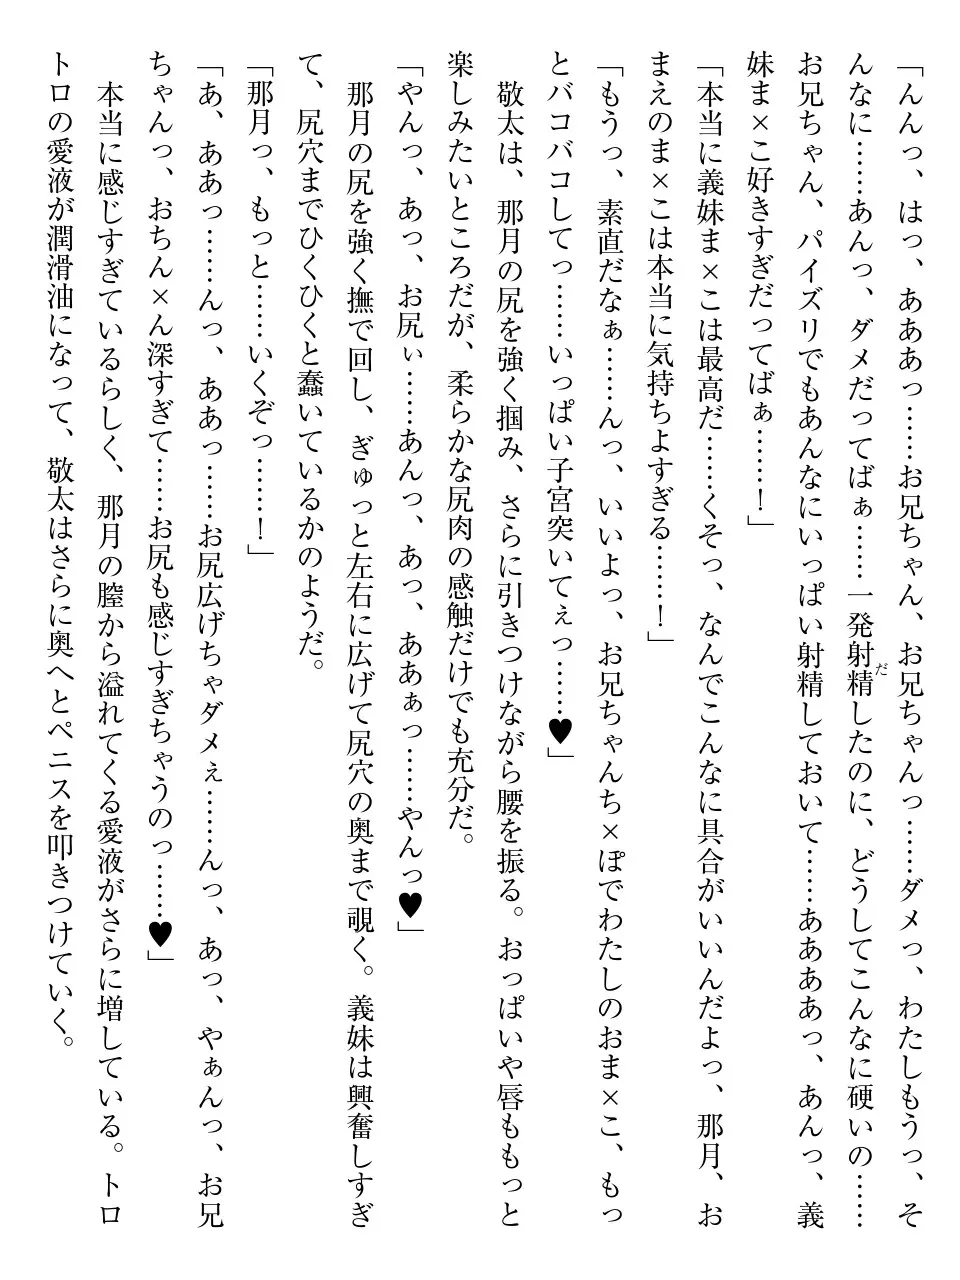 「んんっ、はっ、あああっ……お兄ちゃん、お兄ちゃんっ……ダメっ、わたしもうっ、そ
んなに……あんっ、ダメだってばぁ……一発射精したのに、どうしてこんなに硬いの……
だ
お兄ちゃん、パイズリでもあんなにいっぱい射精しておいて……ああああっ、あんっ、義
妹ま×こ好きすぎだってばぁ……！」
「本当に義妹ま×こは最高だ……くそっ、なんでこんなに具合がいいんだよっ、那月、お
まえのま×こは本当に気持ちよすぎる……！」
「もうっ、素直だなぁ……んっ、いいよっ、お兄ちゃんち×ぽでわたしのおま×こ、もっ
とバコバコしてっ……いっぱい子宮突いてぇっ……♥」
　敬太は、那月の尻を強く掴み、さらに引きつけながら腰を振る。おっぱいや唇ももっと
楽しみたいところだが、柔らかな尻肉の感触だけでも充分だ。
「やんっ、あっ、お尻ぃ……あんっ、あっ、ああぁっ……やんっ♥」
　那月の尻を強く撫で回し、ぎゅっと左右に広げて尻穴の奥まで覗く。義妹は興奮しすぎ
て、尻穴までひくひくと蠢いているかのようだ。
「那月っ、もっと……いくぞっ……！」
「あ、ああっ……んっ、ああっ……お尻広げちゃダメぇ……んっ、あっ、やぁんっ、お兄
ちゃんっ、おちん×ん深すぎて……お尻も感じすぎちゃうのっ……♥」
　本当に感じすぎているらしく、那月の膣から溢れてくる愛液がさらに増している。トロ
トロの愛液が潤滑油になって、敬太はさらに奥へとペニスを叩きつけていく。